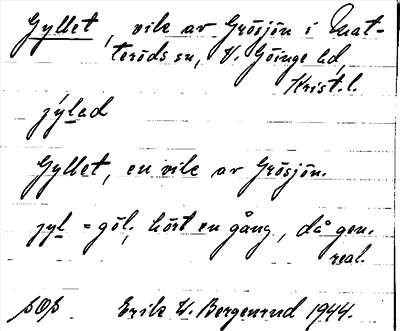 Gyllet, vik av Grösjön i Mat-
teröds sn, V. Göinge hd,
Krist. l.
jýlad
Gyllet, en vik av Grösjön.
jyl = göl; hört en gång, då gen.
real.
Erik W. Bergenrud 1944.